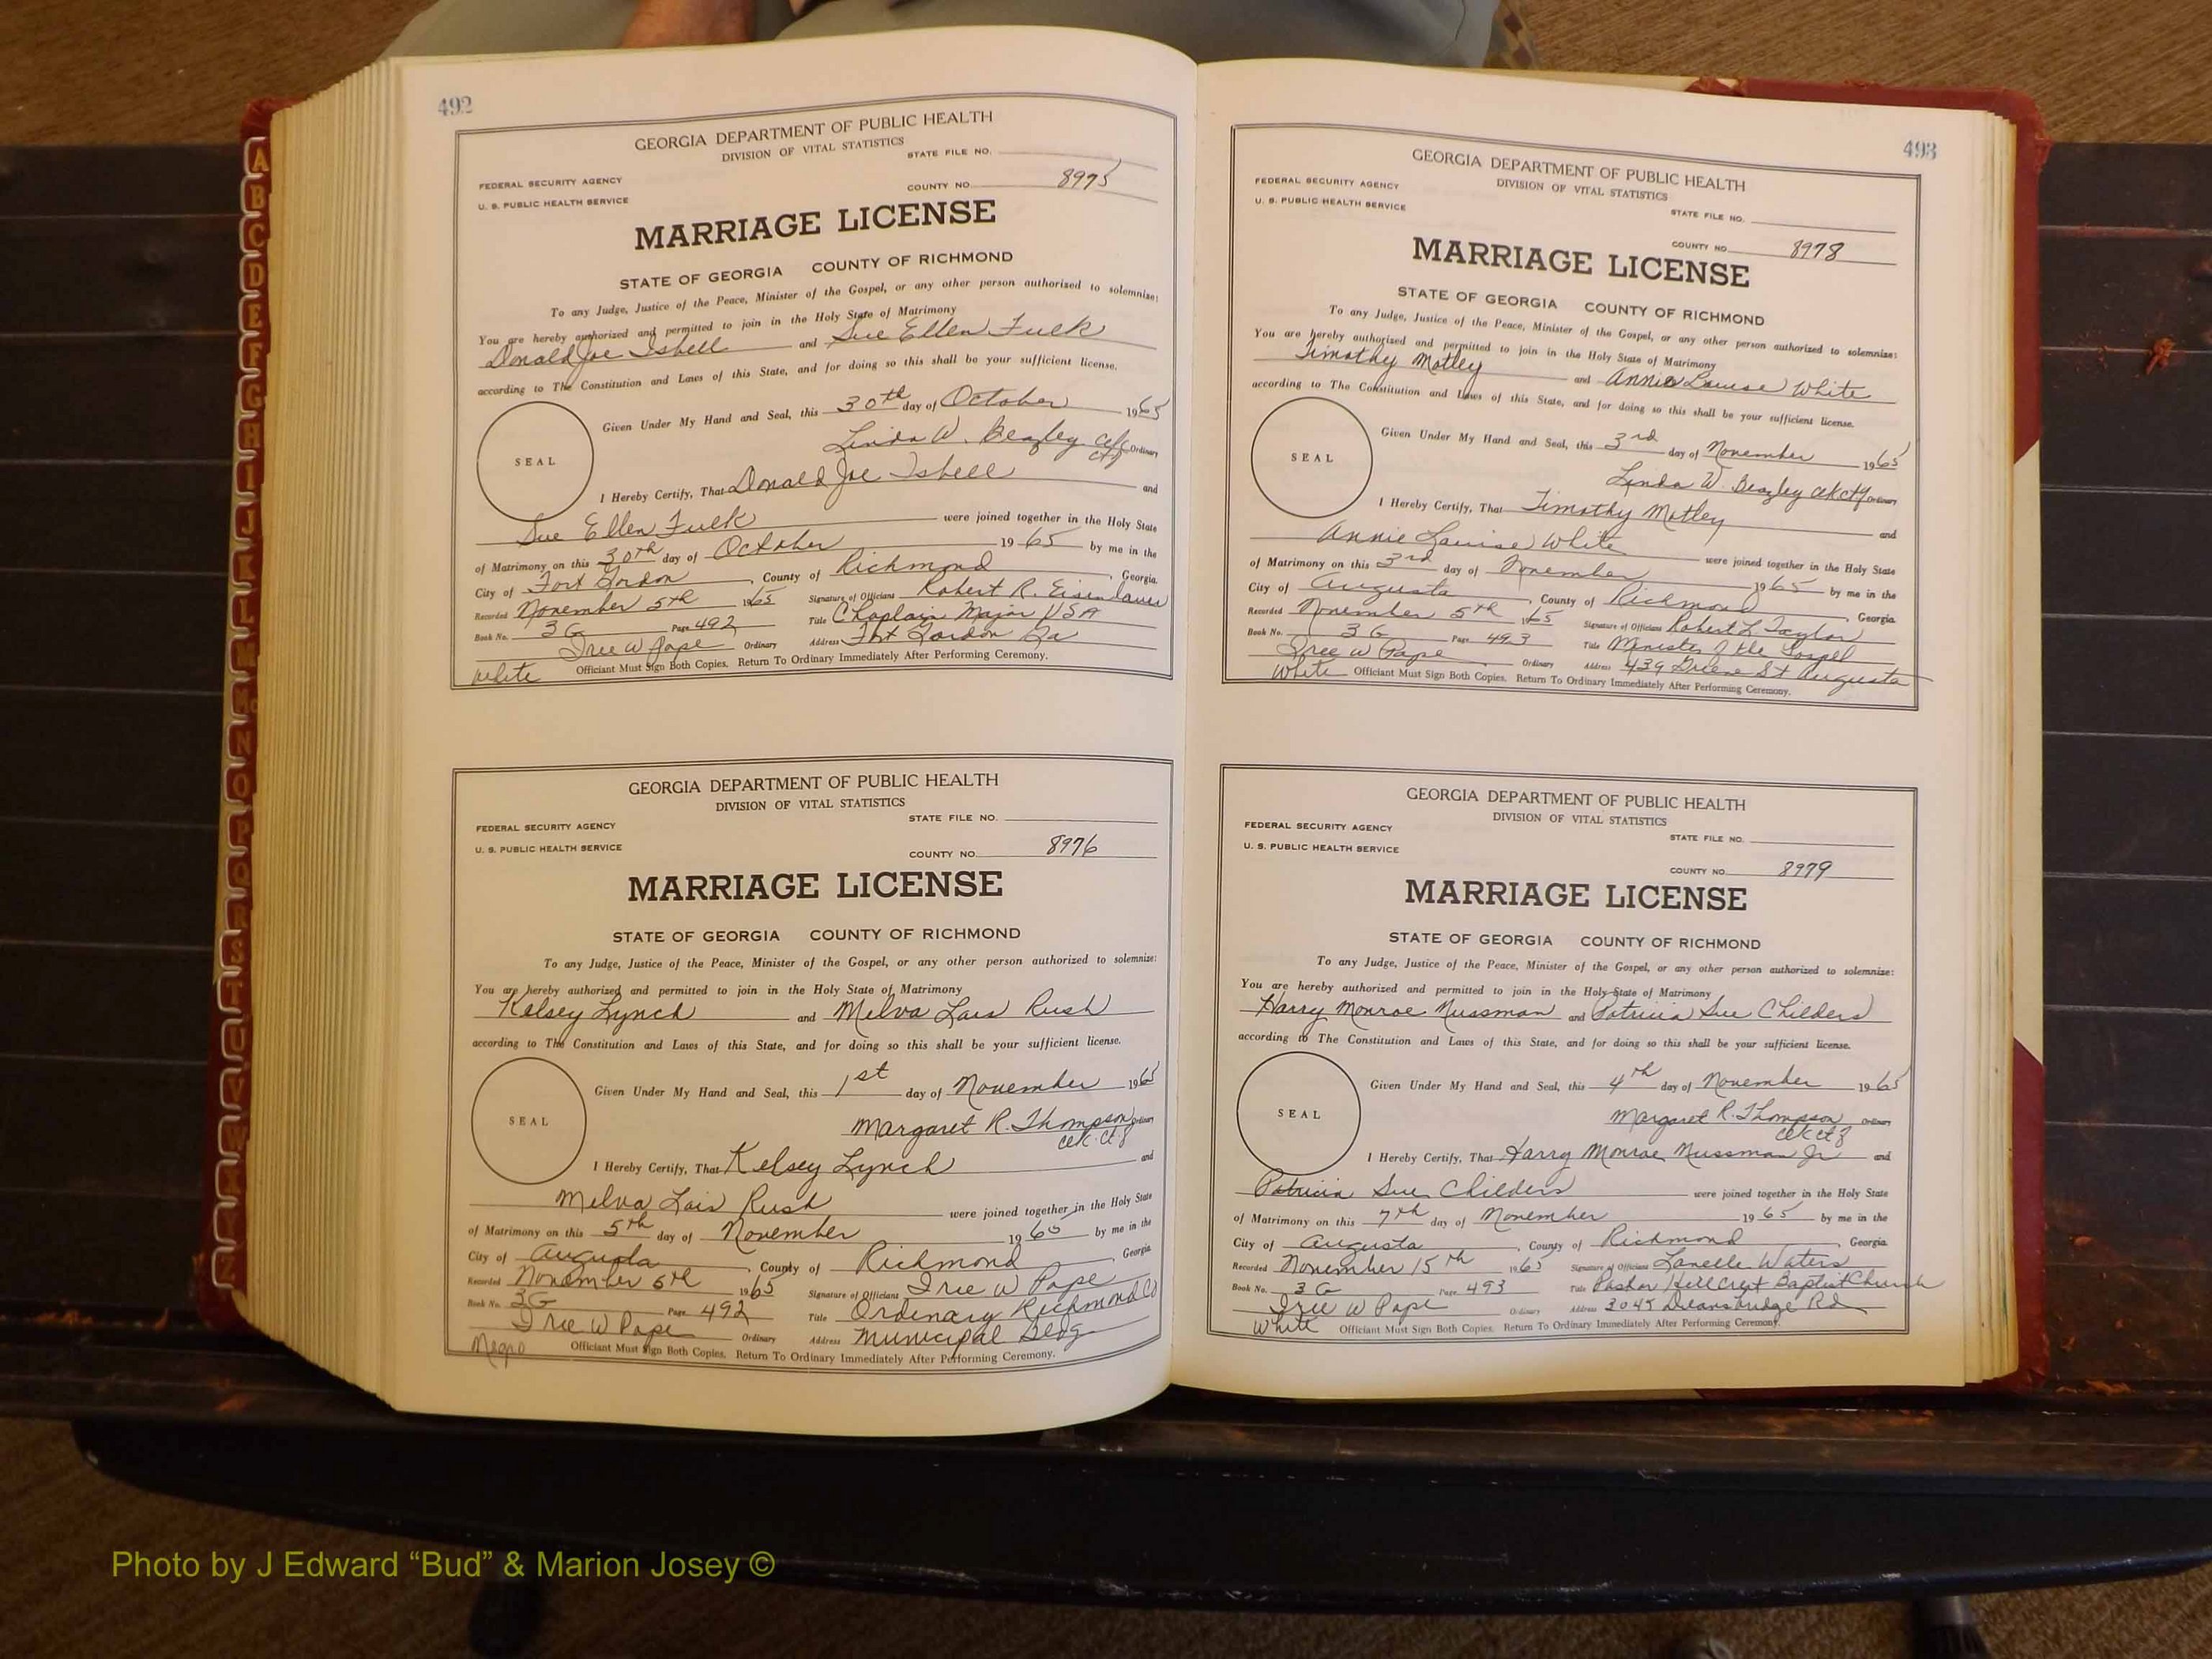 492
GEORGIA DEPARTMENT OF PUBLIC HEALTH
DIVISION OF VITAL STATISTICS
STATE FILE NO.
FEDERAL SECURITY AGENCY
U. S. PUBLIC HEALTH SERVICE
COUNTY NO. 8975
MARRIAGE LICENSE
STATE OF GEORGIA COUNTY OF RICHMOND
To any Judge, Justice of the Peace, Minister of the Gospel, or any other person authorized to solemnize:
You are hereby authorized and permitted to join in the Holy State of Matrimony
Donald Joe Isbell and Sue Ellen Fulk
according to The Constitution and Laws of this State, and for doing so this shall be your sufficient license.
SEAL
Given Under My Hand and Seal, this 30th day of October 1965
Linda W. Beazley Clk Cty Ordinary
I Hereby Certify, That Donald Joe Isbell and
Sue Ellen Fulk were joined together in the Holy State
of Matrimony on this 30th day of October 1965 by me in the
City of Fort Gordon, County of Richmond, Georgia.
Recorded November 5th 1965 Signature of Officiant Robert R.
Book No. 3G Page 492 Title Chaplain Major USA
Iree W Pope Ordinary Address Fort Gordon Ga
white Officiant Must Sign Both Copies. Return To Ordinary Immediately After Performing Ceremony.
GEORGIA DEPARTMENT OF PUBLIC HEALTH
DIVISION OF VITAL STATISTICS
STATE FILE NO.
FEDERAL SECURITY AGENCY
U. S. PUBLIC HEALTH SERVICE
COUNTY NO. 8976
MARRIAGE LICENSE
STATE OF GEORGIA COUNTY OF RICHMOND
To any Judge, Justice of the Peace, Minister of the Gospel, or any other person authorized to solemnize:
You are hereby authorized and permitted to join in the Holy State of Matrimony
Kelsey Lynch and Melva Lois Rush
according to The Constitution and Laws of this State, and for doing so this shall be your sufficient license.
SEAL
Given Under My Hand and Seal, this 1st day of November 1965
Margaret R. Thompson Ordinary
Clk. Ct.
I Hereby Certify, That Kelsey Lynch and
Melva Lois Rush were joined together in the Holy State
of Matrimony on this 5th day of November 1965 by me in the
City of Augusta, County of Richmond, Georgia
Recorded November 5th 1965 Signature of Officiant Iree W Pope
Book No. 3G Page 492 Title Ordinary Richmond Co
Iree W Pope Ordinary Address Municipal Bldg
Negro Officiant Must Sign Both Copies. Return To Ordinary Immediately After Performing Ceremony.
493
GEORGIA DEPARTMENT OF PUBLIC HEALTH
DIVISION OF VITAL STATISTICS
FEDERAL SECURITY AGENCY
U. S. PUBLIC HEALTH SERVICE
STATE FILE NO.
COUNTY NO. 8978
MARRIAGE LICENSE
STATE OF GEORGIA COUNTY OF RICHMOND
To any Judge, Justice of the Peace, Minister of the Gospel, or any other person authorized to solemnize:
You are hereby authorized and permitted to join in the Holy State of Matrimony
Timothy Motley and Annie Louise White
according to The Constitution and Laws of this State, and for doing so this shall be your sufficient license.
SEAL
Given Under My Hand and Seal, this 3rd day of November 1965
Linda W. Beazley Clk Cty Ordinary
I Hereby Certify, That Timothy Motley and
Annie Louise White were joined together in the Holy State
of Matrimony on this 3rd day of November 1965 by me in the
City of Augusta, County of Richmond, Georgia.
Recorded November 5th 1965 Signature of Officiant Robert L. Taylor
Book No. 3G Page 493 Title Minister of the Gospel
Iree W Pope Ordinary Address 439 Greene St Augusta
White Officiant Must Sign Both Copies. Return To Ordinary Immediately After Performing Ceremony.
GEORGIA DEPARTMENT OF PUBLIC HEALTH
DIVISION OF VITAL STATISTICS
FEDERAL SECURITY AGENCY
STATE FILE NO.
U. S. PUBLIC HEALTH SERVICE
COUNTY NO. 8979
MARRIAGE LICENSE
STATE OF GEORGIA COUNTY OF RICHMOND
To any Judge, Justice of the Peace, Minister of the Gospel, or any other person authorized to solemnize:
You are hereby authorized and permitted to join in the Holy State of Matrimony
Harry Monroe Nussman and Patricia Sue Childers
according to The Constitution and Laws of this State, and for doing so this shall be your sufficient license.
SEAL
Given Under My Hand and Seal, this 4th day of November 1965
Margaret R. Thompson Ordinary
Clk Ct
I Hereby Certify, That Harry Monroe Nussman Jr and
Patricia Sue Childers were joined together in the Holy State
of Matrimony on this 7th day of November 1965 by me in the
City of Augusta, County of Richmond, Georgia.
Recorded November 15th 1965 Signature of Officiant Lanelle Waters
Book No. 3G Page 493 Title Pastor Hillcrest Baptist Church
Iree W Pope Ordinary Address 3045 Deans Bridge Rd
White Officiant Must Sign Both Copies. Return To Ordinary Immediately After Performing Ceremony.
A
B
C
D
E
F
G
H
I
J
K
L
M
Mc
N
O
P
Q
R
S
T
U
V
W
X
Y
Z
Photo by J Edward “Bud” & Marion Josey ©